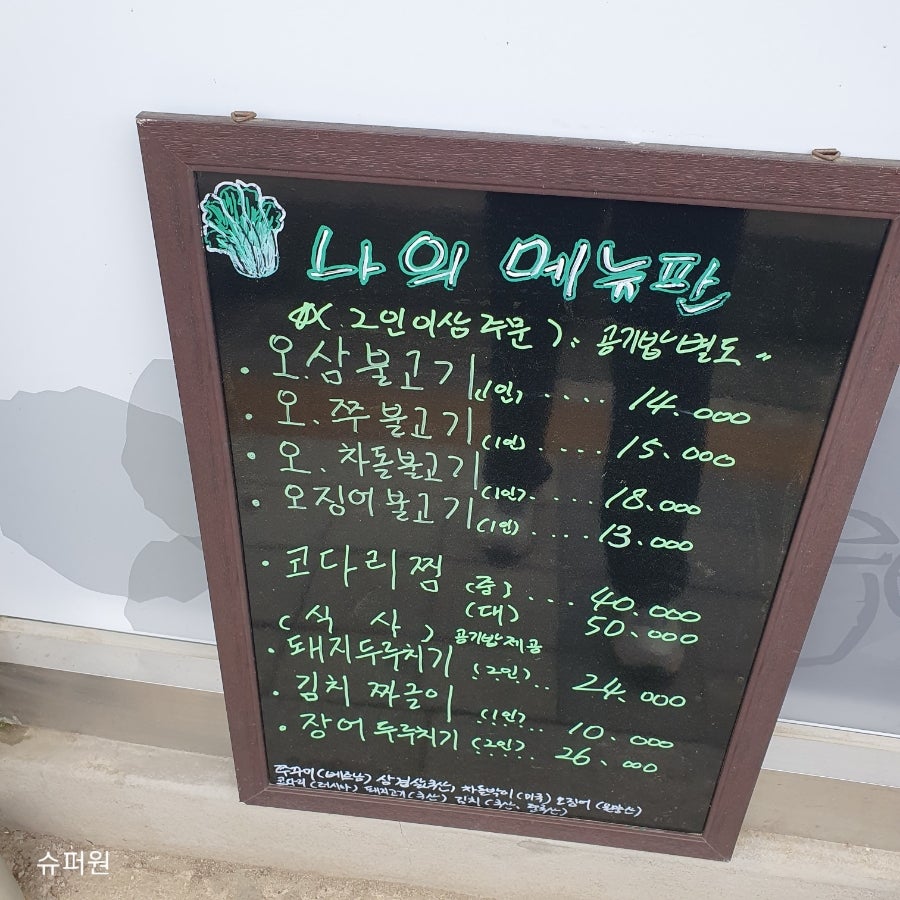 나의 메뉴판
※ (2인이상 주문). 공기밥 별도
· 오.삼불고기 (1인) .... 14.000
· 오.쭈불고기 (1인) ..... 15.000
· 오.차돌불고기 (1인) .... 18.000
· 오징어불고기 (1인) .... 13.000
· 코다리찜 (중) .... 40.000
(대) 50.000
(식 사) 공기밥제공
· 돼지두루치기 (2인).. 24.000
· 김치 짜글이 (1인)... 10.000
· 장어두루치기 (2인)..... 26.000
쭈꾸미(베트남) 삼겹살(국산), 차돌박이(미국) 오징어(원양산)
코다리(러시아) 돼지고기(국산) 김치(국산, 중국산)
슈퍼원